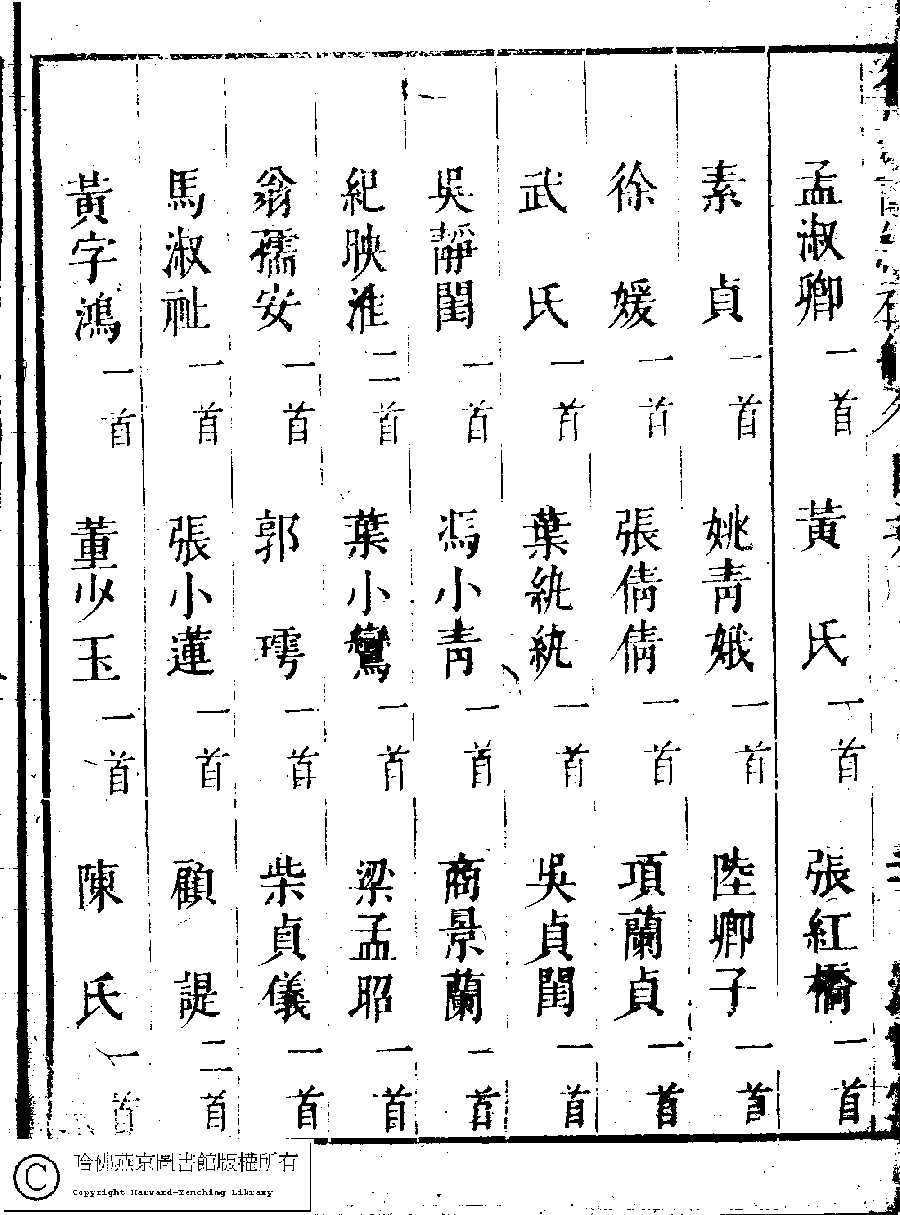 孟淑卿 一首 黃氏 一首 張紅橋 一首
素貞 一首 姚青娥 一首 陸卿子 一首
徐媛 一首 張倩倩 一首 項蘭貞 一首
武氏 一首 葉紈紈 一首 吳貞閨 一首
吳靜閨 一首 馮小青 一首 商景蘭 一首
紀映淮 二首 葉小鸞 一首 梁孟昭 一首
翁孺安 一首 郭璕 一首 柴貞儀 一首
馬淑祉 一首 張小蓮 一首 顧諟 二首
黃字鴻 一首 董少玉 一首 陳氏 一首
哈佛燕京圖書館版權所有
Copyright Harvard-Yenching Library